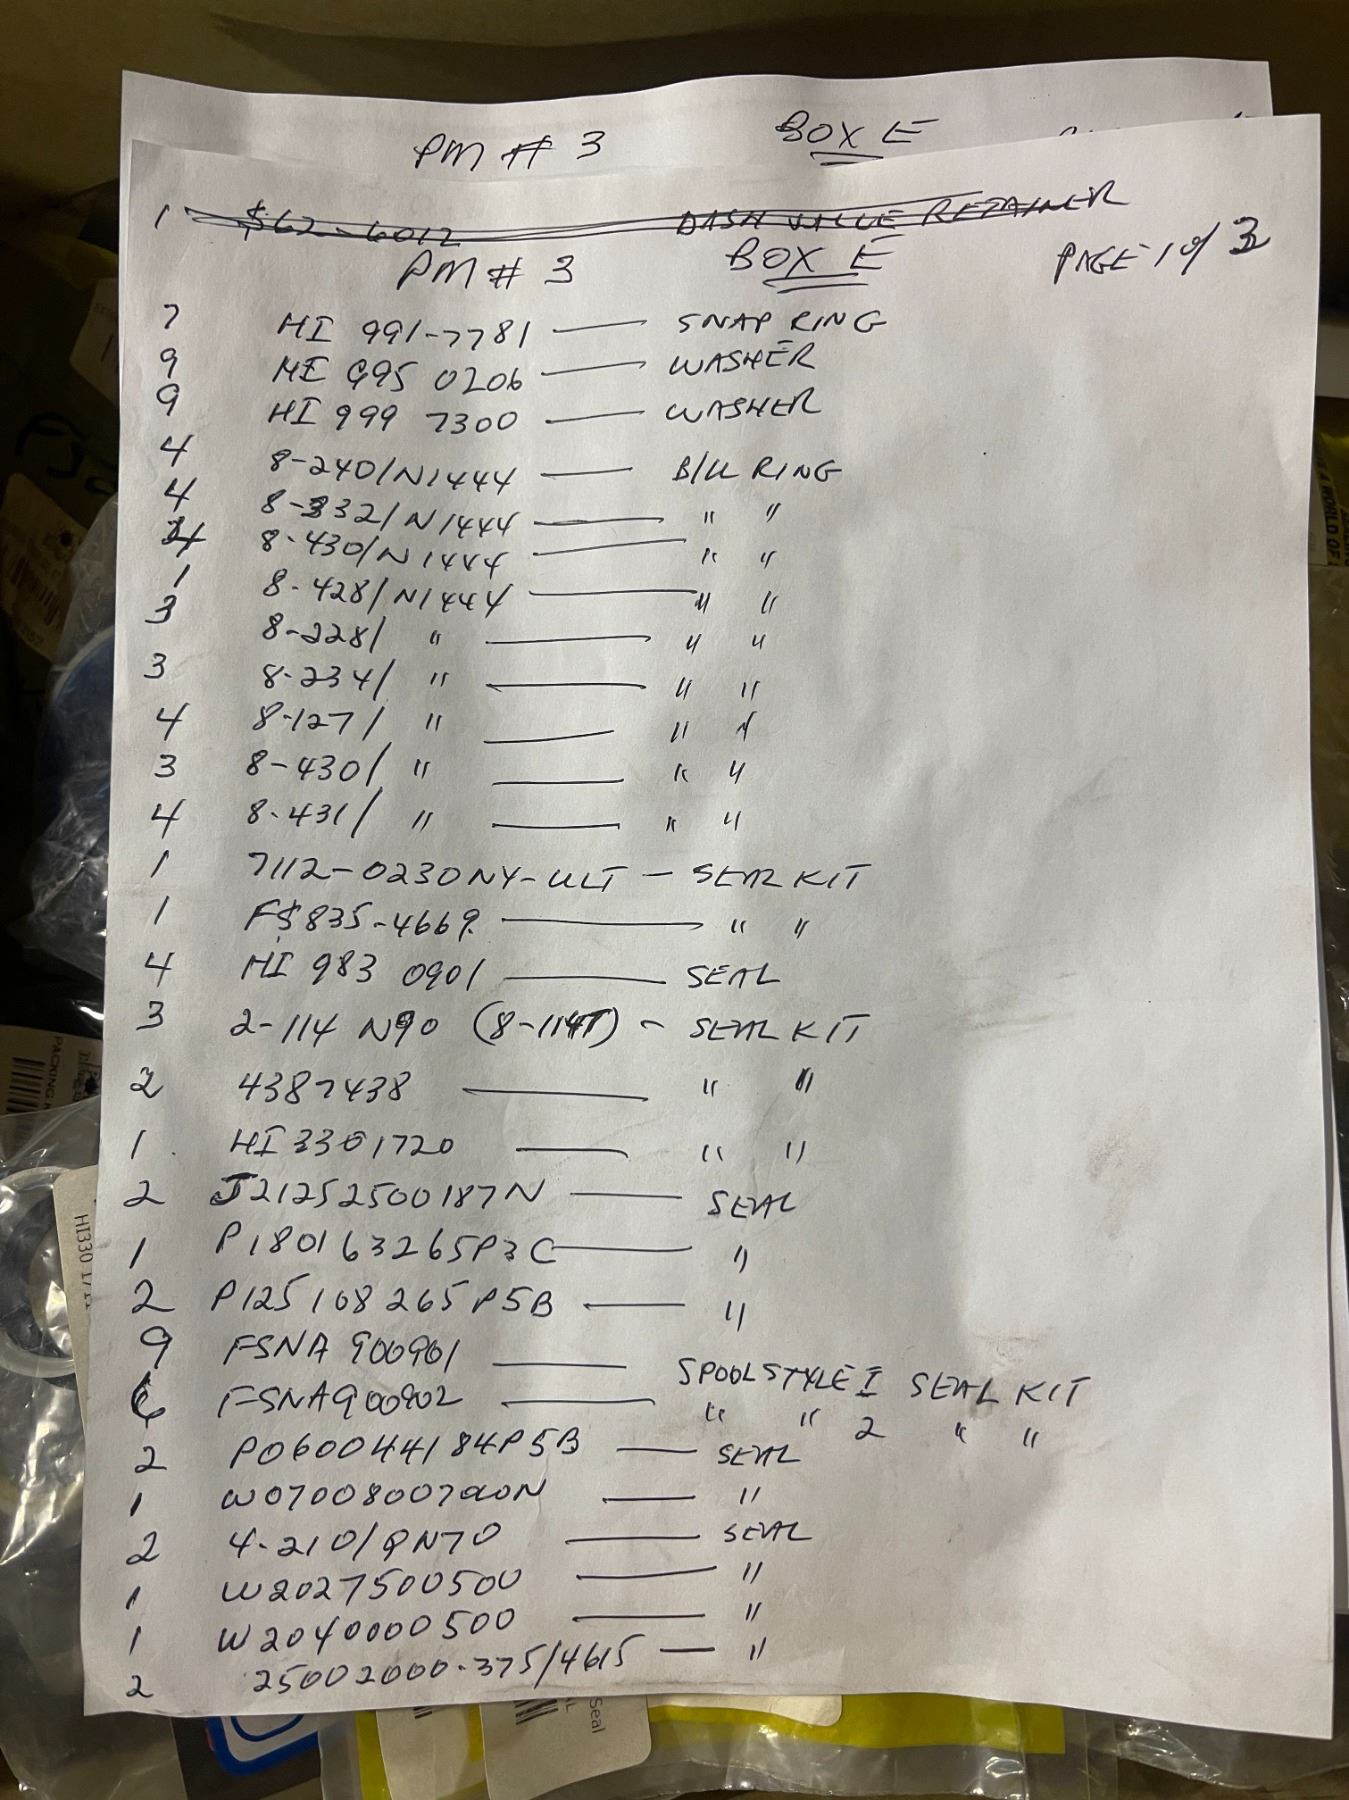 PM # 3 BOX E
1 $62-6012 DASH VALUE RETAINER
PM # 3 BOX E PAGE 1 of 3
7 HI 991-7781 — SNAP RING
9 HI 995 0206 — WASHER
9 HI 999 7300 — WASHER
4 8-240/N1444 — B/U RING
4 8-332/N1444 — " "
4 8-430/N1444 — " "
1 8-428/N1444 — " "
3 8-228/ " — " "
3 8-234/ " — " "
4 8-127/ " — " "
3 8-430/ " — " "
4 8-431/ " — " "
1 7112-0230NY-ULT — SEAL KIT
1 FS835-4669 — " "
4 HI 983 0901 — SEAL
3 2-114 N90 (8-114T) — SEAL KIT
2 4387438 — " "
1 HI 3301720 — " "
2 J21252500187N — SEAL
1 P180163265P3C — "
2 P125108265P5B — "
9 FSNA 900901 — SPOOL STYLE I SEAL KIT
6 FSNA900902 — " " 2 " "
2 P060044184P5B — SEAL
1 — "
2 4-210/QN70 — SEAL
1 W2027500500 — "
1 W2040000500 — "
2 25002000-375/4615 — "
PACKING
HI330
Seal